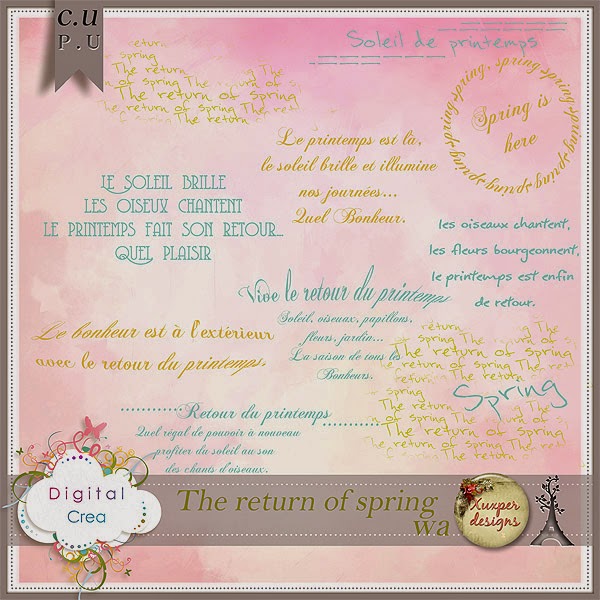 c.u
P.U
return
spring
The return
The return of spring The return
The return of spring
return of spring The return
of spring The return
Soleil de printemps
spring, spring, spring, spring, spring, spring, spring, spring
Spring is
here
Le printemps est là,
le soleil brille et illumine
nos journées...
Quel Bonheur.
LE SOLEIL BRILLE
LES OISEUX CHANTENT
LE PRINTEMPS FAIT SON RETOUR...
QUEL PLAISIR
les oiseaux chantent,
les fleurs bourgeonnent,
le printemps est enfin
de retour.
Vive le retour du printemps
Soleil, oiseaux, papillons,
fleurs, jardin...
La saison de tous les
Bonheurs.
Le bonheur est à l'extérieur
avec le retour du printemps.
return
spring The
The return of s
The return of spring
return of spring
spring
Spring
The return
return of spring The return of s
The return of spring
return of spring The return
of spring The return of spring
Retour du printemps
Quel régal de pouvoir à nouveau
profiter du soleil au son
des chants d'oiseaux.
Digital
Crea
The return of spring
wa
Xuxper
designs